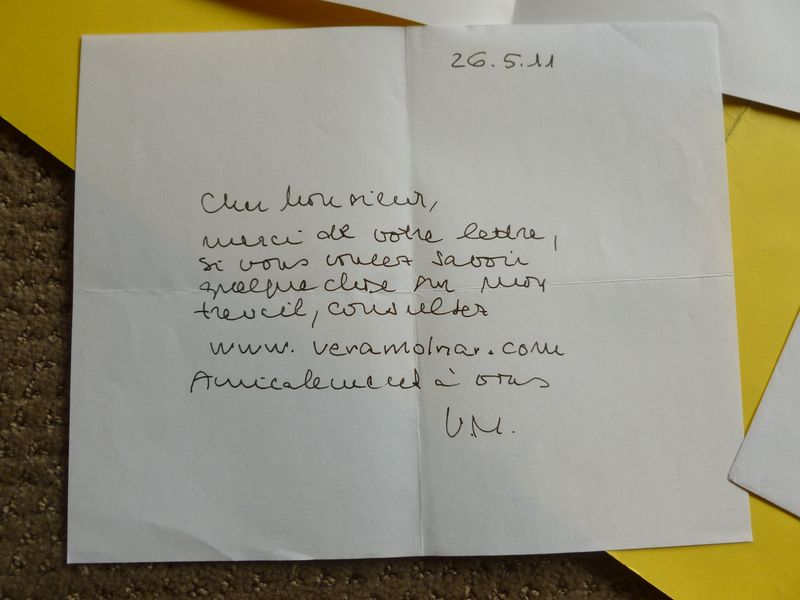 26.5.11
Cher Monsieur,
merci de votre lettre,
si vous voulez savoir
quelque chose sur mon
travail, consultez
www.veramolnar.com
Amicalement à vous
V.M.